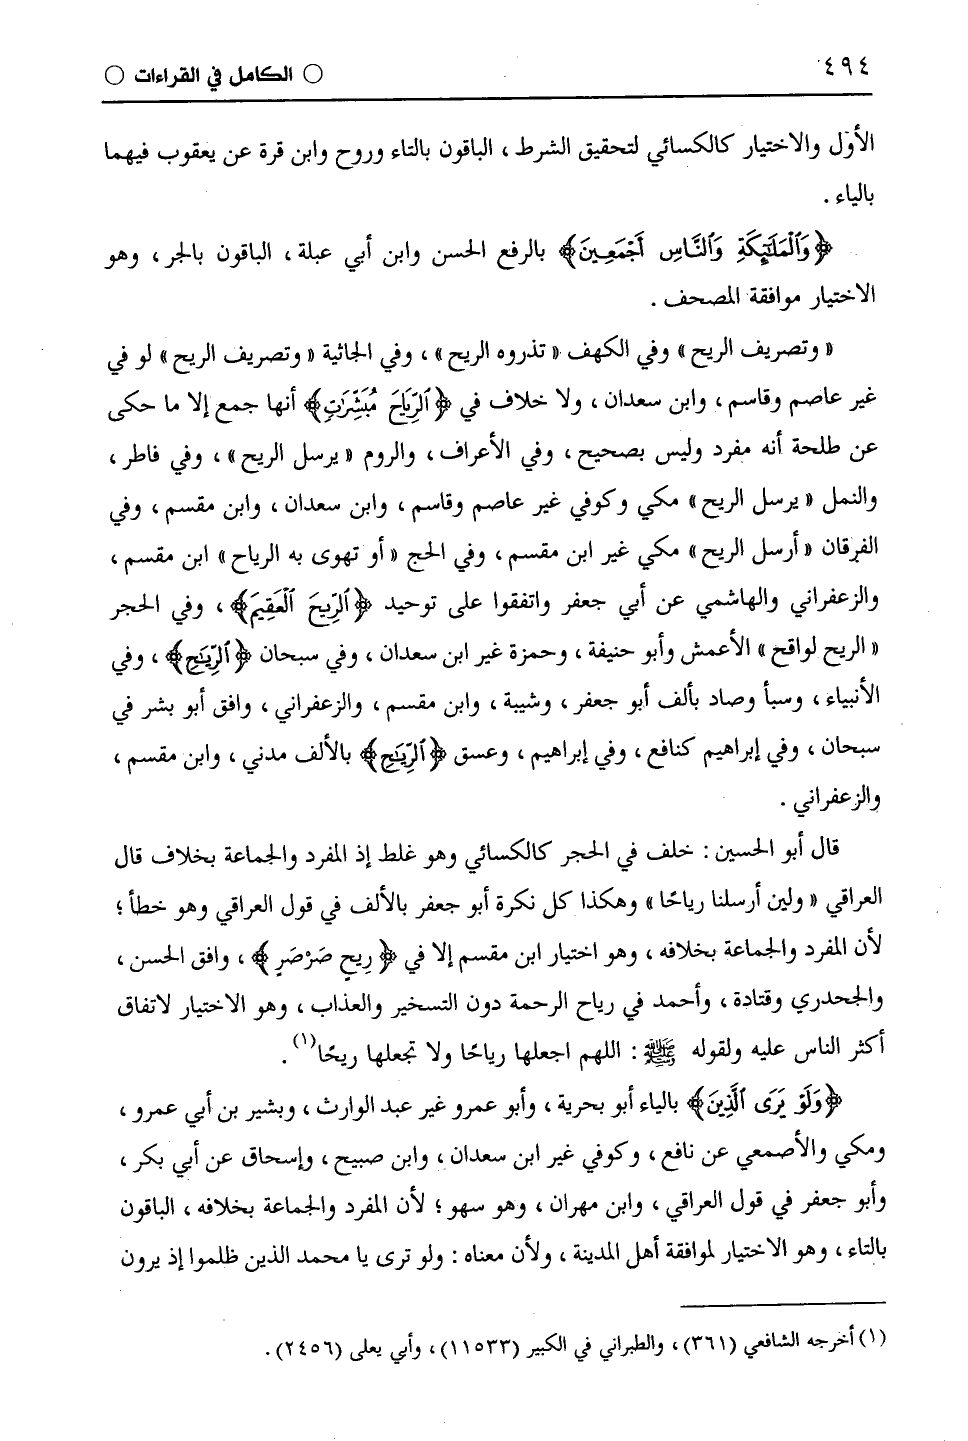 ٤٩٤
○ الكامل في القراءات ○
الأول والاختيار كالكسائي لتحقيق الشرط ، الباقون بالتاء وروح وابن قرة عن يعقوب فيهما
بالياء .
﴿وَٱلْمَلَٰٓئِكَةِ وَٱلنَّاسِ أَجْمَعِينَ﴾ بالرفع الحسن وابن أبي عبلة ، الباقون بالجر ، وهو
الاختيار موافقة المصحف .
« وتصريف الريح » وفي الكهف « تذروه الريح » ، وفي الجاثية « وتصريف الريح » لو في
غير عاصم وقاسم ، وابن سعدان ، ولا خلاف في ﴿ٱلرِّيَاحَ مُبَشِّرَٰتٍ﴾ أنها جمع إلا ما حكى
عن طلحة أنه مفرد وليس بصحيح ، وفي الأعراف ، والروم « يرسل الريح » ، وفي فاطر ،
والنمل « يرسل الريح » مكي وكوفي غير عاصم وقاسم ، وابن سعدان ، وابن مقسم ، وفي
الفرقان « أرسل الريح » مكي غير ابن مقسم ، وفي الحج « أو تهوى به الرياح » ابن مقسم ،
والزعفراني والهاشمي عن أبي جعفر واتفقوا على توحيد ﴿ٱلرِّيحَ ٱلْعَقِيمَ﴾ ، وفي الحجر
« الريح لواقح » الأعمش وأبو حنيفة ، وحمزة غير ابن سعدان ، وفي سبحان ﴿ٱلرِّيَٰحِ﴾ ، وفي
الأنبياء ، وسبأ وصاد بألف أبو جعفر ، وشيبة ، وابن مقسم ، والزعفراني ، وافق أبو بشر في
سبحان ، وفي إبراهيم كنافع ، وفي إبراهيم ، وعسق ﴿ٱلرِّيَٰحِ﴾ بالألف مدني ، وابن مقسم ،
والزعفراني .
قال أبو الحسين : خلف في الحجر كالكسائي وهو غلط إذ المفرد والجماعة بخلاف قال
العراقي « ولين أرسلنا رياحًا » وهكذا كل نكرة أبو جعفر بالألف في قول العراقي وهو خطأ ؛
لأن المفرد والجماعة بخلافه ، وهو اختيار ابن مقسم إلا في ﴿رِيحٍ صَرْصَرٍ﴾ ، وافق الحسن ،
والجحدري وقتادة ، وأحمد في رياح الرحمة دون التسخير والعذاب ، وهو الاختيار لاتفاق
أكثر الناس عليه ولقوله ﷺ : اللهم اجعلها رياحًا ولا تجعلها ريحًا(١) .
﴿وَلَوْ يَرَى ٱلَّذِينَ﴾ بالياء أبو بحرية ، وأبو عمرو غير عبد الوارث ، وبشير بن أبي عمرو ،
ومكي والأصمعي عن نافع ، وكوفي غير ابن سعدان ، وابن صبيح ، وإسحاق عن أبي بكر ،
وأبو جعفر في قول العراقي ، وابن مهران ، وهو سهو ؛ لأن المفرد والجماعة بخلافه ، الباقون
بالتاء ، وهو الاختيار لموافقة أهل المدينة ، ولأن معناه : ولو ترى يا محمد الذين ظلموا إذ يرون
(١) أخرجه الشافعي (٣٦١) ، والطبراني في الكبير (١١٥٣٣) ، وأبي يعلى (٢٤٥٦) .